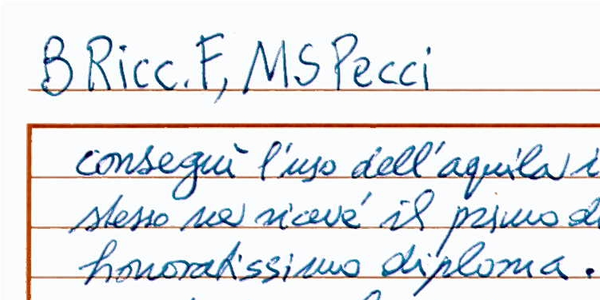 B Ricc. F, MS Pecci
conseguì l'uso dell'aquila i
stesso ne ricevé il primo d
honoratissimo diploma.